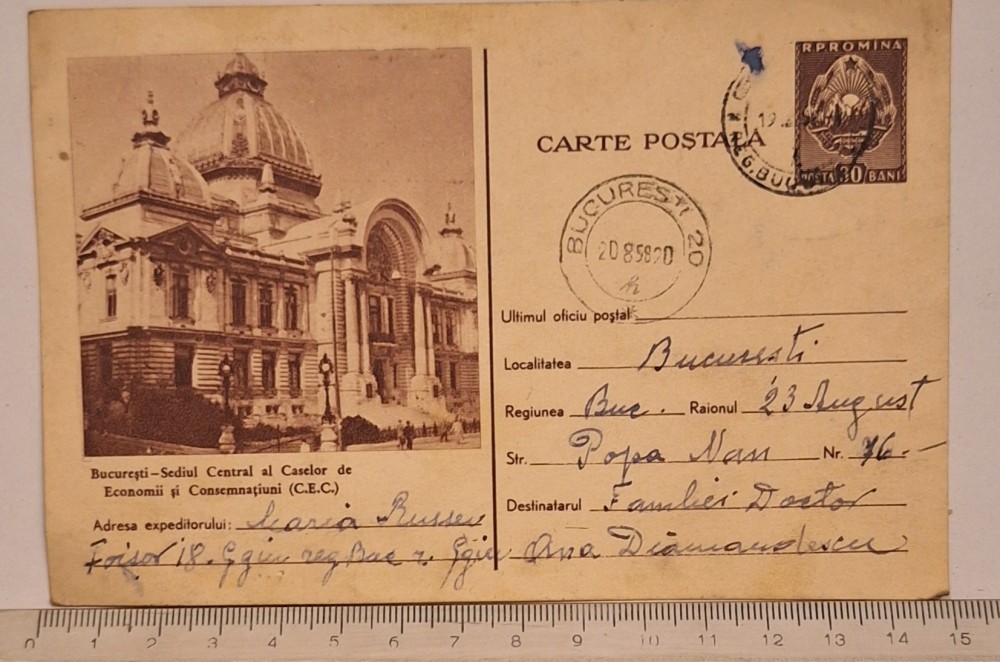 R P ROMINA
POSTA 30 BANI
CARTE POSTALĂ
BUCUREȘTI 20
20 8 58 20
Ultimul oficiu poștal
Localitatea București
Regiunea Buc. Raionul 23 August
Str. Popa Nan Nr. 76.-
Destinatarul Familiei Doctor
Ana Diamandescu
București – Sediul Central al Caselor de
Economii și Consemnațiuni (C.E.C.)
Adresa expeditorului: Maria Russev
Foișor 18. Ggiu reg Buc r. Ggiu
0 1 2 3 4 5 6 7 8 9 10 11 12 13 14 15